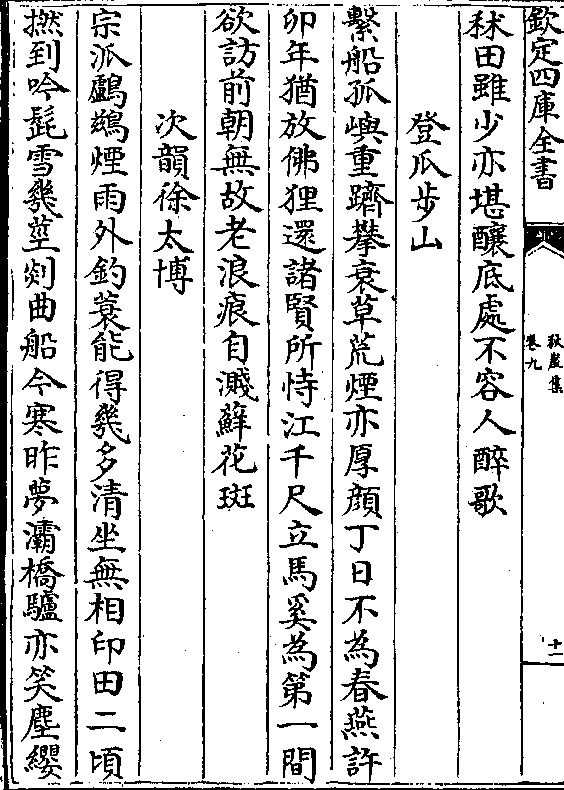 欽定四庫全書
秋崖集
卷九
十一
秫田雖少亦堪釀底處不容人醉歌
登瓜步山
繫船孤嶼重躋攀衰草荒煙亦厚顔丁日不為春燕許
卯年猶放佛狸還諸賢所恃江千尺立馬奚為第一間
欲訪前朝無故老浪痕自濺蘚花斑
次韻徐太博
宗派鸕鷀煙雨外釣蓑能得幾多清坐無相印田二頃
撚到吟髭雪幾莖剡曲船今寒昨夢灞橋驢亦笑塵纓